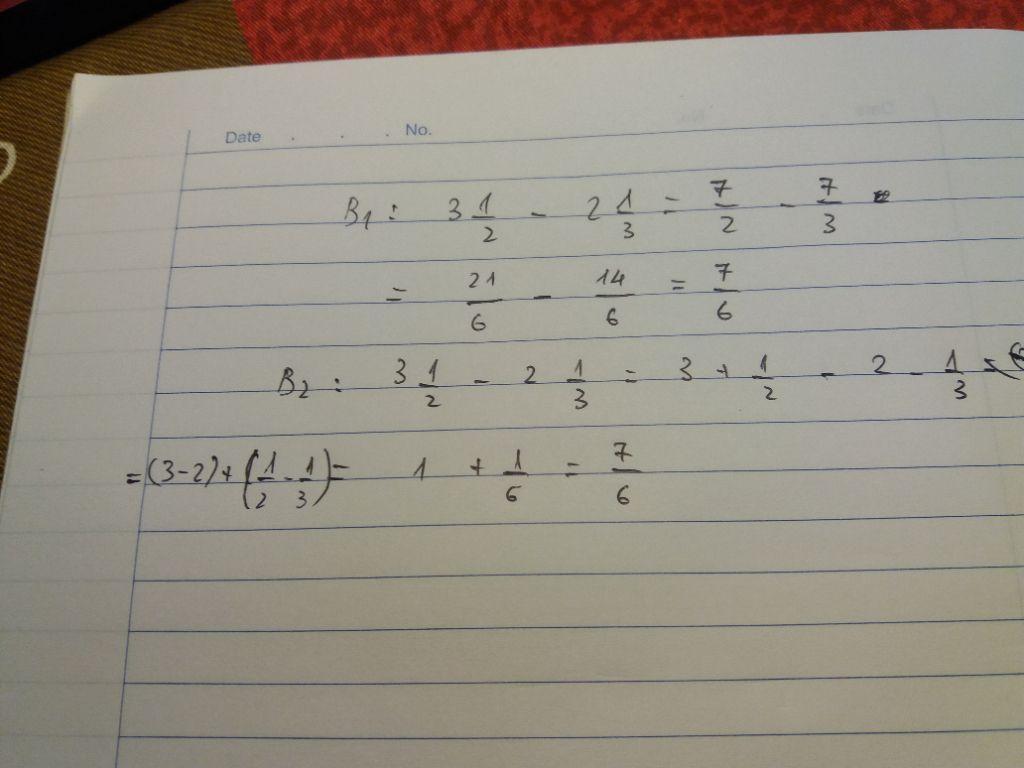 Date . . . No.
B1 : 3 1/2 - 2 1/3 = 7/2 - 7/3
= 21/6 - 14/6 = 7/6
B2 : 3 1/2 - 2 1/3 = 3 + 1/2 - 2 - 1/3 =
= (3-2) + (1/2 - 1/3) = 1 + 1/6 = 7/6